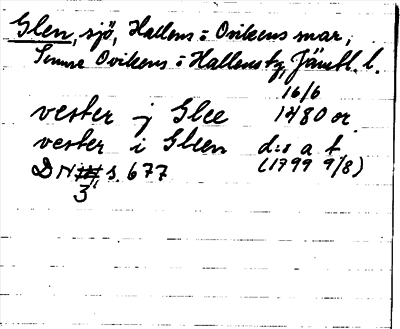 Glen, sjö, Hallens o Ovikens snar,
Sunne Ovikens o Hallens tg, Jämtl. l.
16/6
vester j Glee 1480 or.
vester i Gleen d:o a. t.
DN 3 s. 677 (1799 9/8)